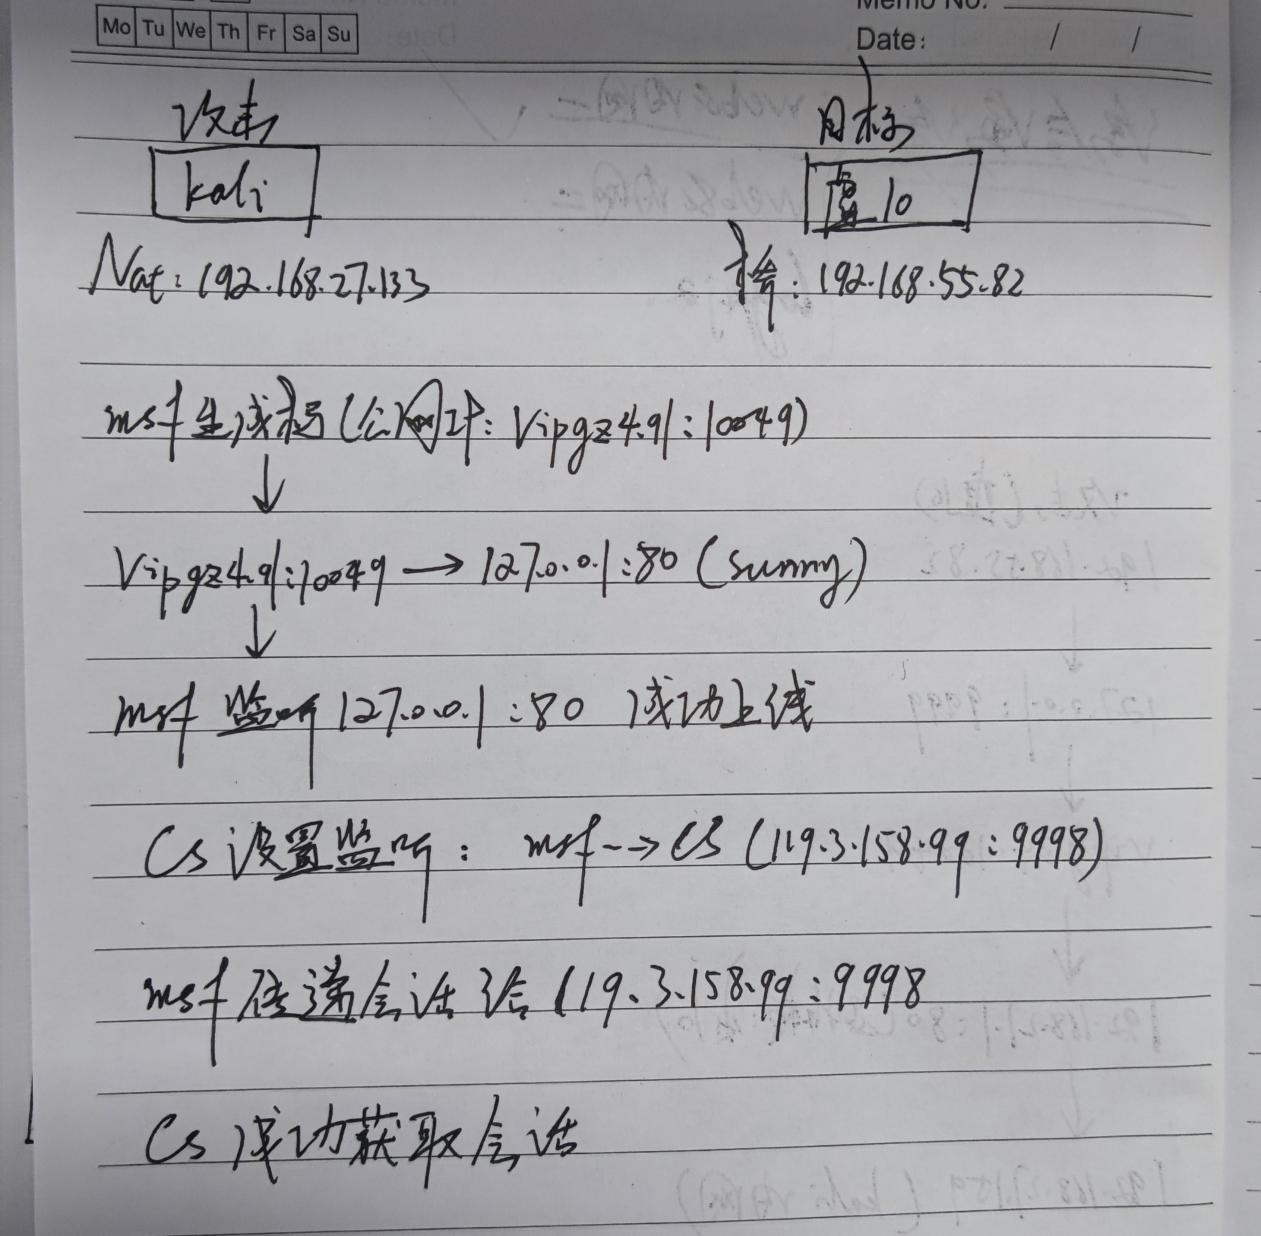 Memo No.
Mo Tu We Th Fr Sa Su
Date: / /
攻击 目标
kali 10
Nat: 192.168.27.133 桥: 192.168.55.82
msf生成码(公网IP: Vipgz4.91:10049)
↓
Vipgz4.91:10049 → 127.0.0.1:80 (sunny)
↓
msf 监听 127.0.0.1:80 成功上线
Cs 设置监听: msf --> CS (119.3.158.99:9998)
msf 传递会话给 119.3.158.99:9998
Cs 成功获取会话